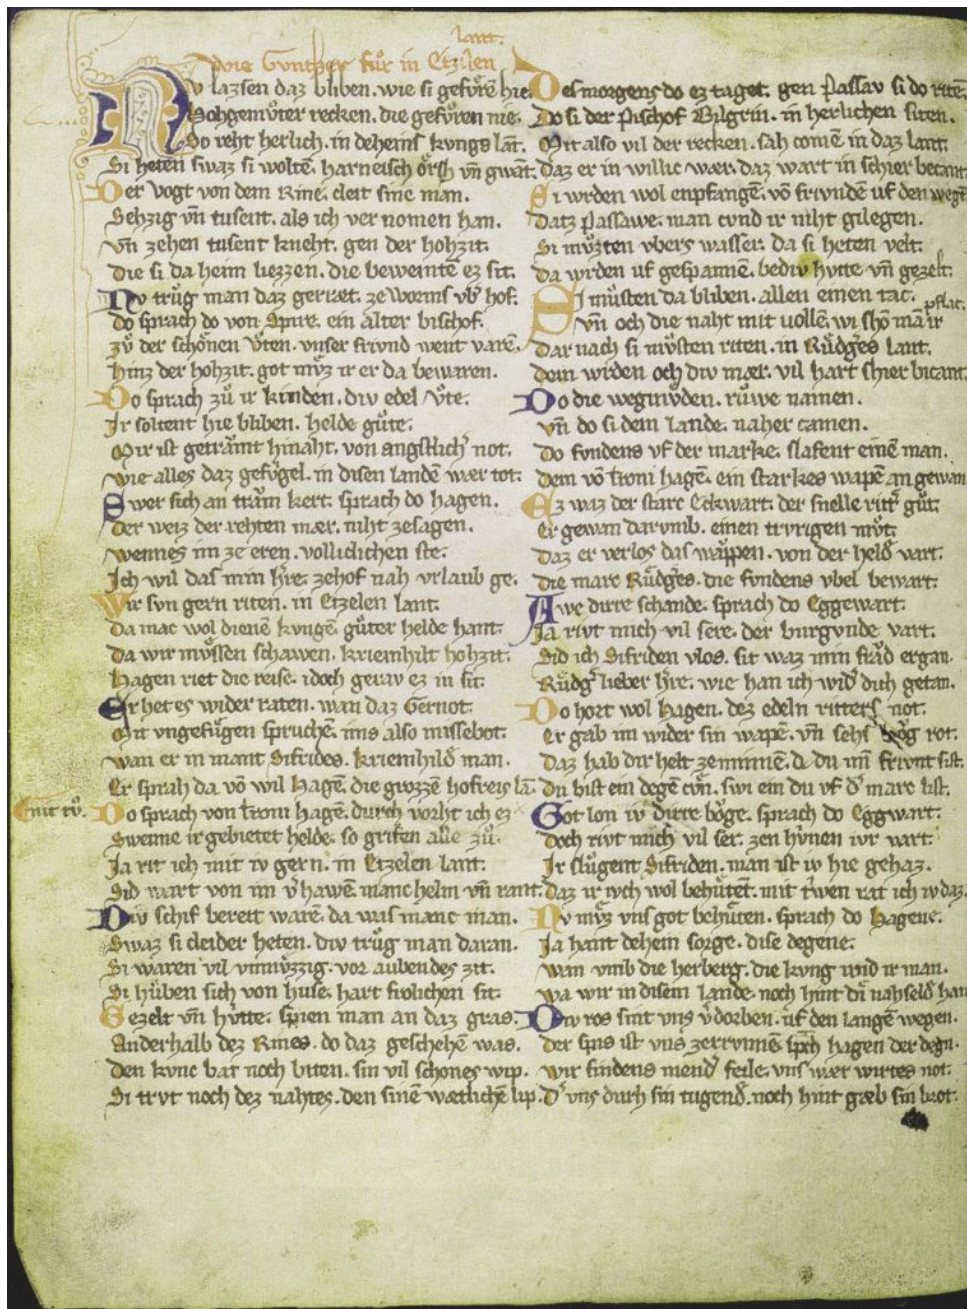 lant.
wie Gvnther fůr in Etzilen
Nv lazsen daz bliben. wie si gefůrē hie.
Hohgemůter recken. die gefůren nie.
So reht herlich. in deheins kvngs lāt.
Si heten swaz si woltē. harneisch órsh vn̄ gwāt.
Der vogt von dem Rine. cleit sine man.
Sehzig vn̄ tusent. als ich ver nomen han.
vn̄ zehen tusent kneht. gen der hohzit.
Die si da heim liezzen. die beweintē ez sit.
Nv trůg man daz geræt. ze Worms vb̄ hof.
do sprach do von Spire. ein alter bischof.
zů der schónen Vten. vnser frivnd went varē.
hinz der hohzit. got můz ir er da bewaren.
Do sprach zů ir kinden. div edel Vte.
Ir soltent hie bliben. helde gůte.
Mir ist getrāmt hinaht. von angstlich' not.
wie alles daz gefůgel. in disen landē wær tot.
Swer sich an trām kert. sprach do hagen.
der weiz der rehten mær. niht ze sagen.
wennes im ze eren. vollichichen ste.
Ich wil das min h're. ze hof nah vrlaub ge.
Wir svn gern riten. in Etzelen lant.
Da mac wol dienē kvnge. gůter helde hant.
Da wir můssen schawen. kriemhilt hohzit.
Hagen riet die reise. idoch gerav ez in sit.
Er het es wider raten. wan daz Gernot.
Mit vngefůgen sprvchē. ims also missebot.
wan er in mant Sifrides. kriemhild man.
Er sprah da vō wil Hagē. die grozzē hofreis lā.
mit iv̊.
Do sprach von troni Hagē. durch vorht ich ez
Swenne ir gebietet helde. so grifen alle zů.
Ja rit ich mit iv gern. in Etzelen lant.
Sid wart von im v'hawē. manc helm vn̄ rant.
Div schif bereit warē. da was manc man.
Swaz si cleider heten. div trůg man daran.
Si waren vil vnmůzzig. vor aubendes zit.
Si hůben sich von huse. hart frolichen sit.
Gezelt vn̄ hůtte. spien man an daz gras.
Anderhalb dez Rines. do daz geschehē was.
den kvnc bat noch biten. sin vil schones wip.
Si trvt noch dez nahtes. den sinē wætlichē lip.
Des morgens do ez taget. gen Passav si do ritē.
Do si der Pischof Bilgrin. in herlichen siten.
Mit also vil der recken. sah comē in daz lant.
Daz er in willic wær. daz wart in schier becant.
Si wrden wol enpfangē. vō frivndē uf den wegē
datz Passawe. man cvnd ir niht gilegen.
Si můzten vbers wasser. da si heten velt.
da wrden uf gespannē. bediv hvtte vn̄ gezelt.
Si můsten da bliben. allen einen tac.
pflac.
vn̄ och die naht mit vollē. wi shō mā ir
dar nach si můsten riten. in Růdg's lant.
dem wrden och div mær. vil hart shier bicant.
Do die wegmůden. růwe namen.
vn̄ do si dem lande. naher camen.
Do fvndens vf der marke. slafent einē man.
dem vō troni hagē. ein starkes wapē an gewan
Ez waz der starc Eckwart. der snelle rittr gůt.
Er gewan darvmb. einen trvrigen můt.
Daz er verlos das wāppen. von der held vart.
die mare Růdg's. die fvndens vbel bewart.
Awe dirre schande. sprach do Eggewart.
Ja rivt mich vil sere. der burgvnde vart.
Sid ich Sifriden vlos. sit waz min frād ergan.
Růdg' lieber h're. wie han ich wid' dich getan.
Do hort wol Hagen. dez edeln ritters not.
er gab im wider sin wapē. vn̄ sehs bóg rot.
daz hab dir helt ze minnē. d du min frivnt sist.
du bist ein degē cůn. swi ein du vf d' mare list.
Got lon iv dirre bóge. sprach do Eggwart.
doch rivt mich vil ser. zen hvnen ivr vart.
Ir slůgent Sifriden. man ist iv hie gehaz.
daz ir ivch wol behůtet. mit trwen rat ich iv daz.
Nv můz vns got behůten. sprach do Hagene.
Ja hant dehein sorge. dise degene.
wan vmb die herberg. die kvng vnd ir man.
wa wir in disem lande. noch hint di nahseld han
Div ros sint vns v'dorben. uf den langē wegen.
der spis ist vns zerrvnnē. sp̄ch hagen der degn.
wir findens niend' feile. vns wær wirtes not.
D' vns durh sin tugend. noch hint gæb sin brot.